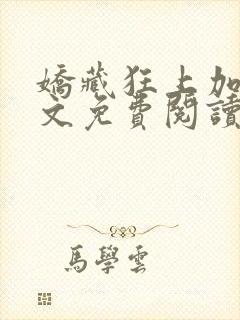 嬌藏狂上加
文免費閱讀
馬學雲